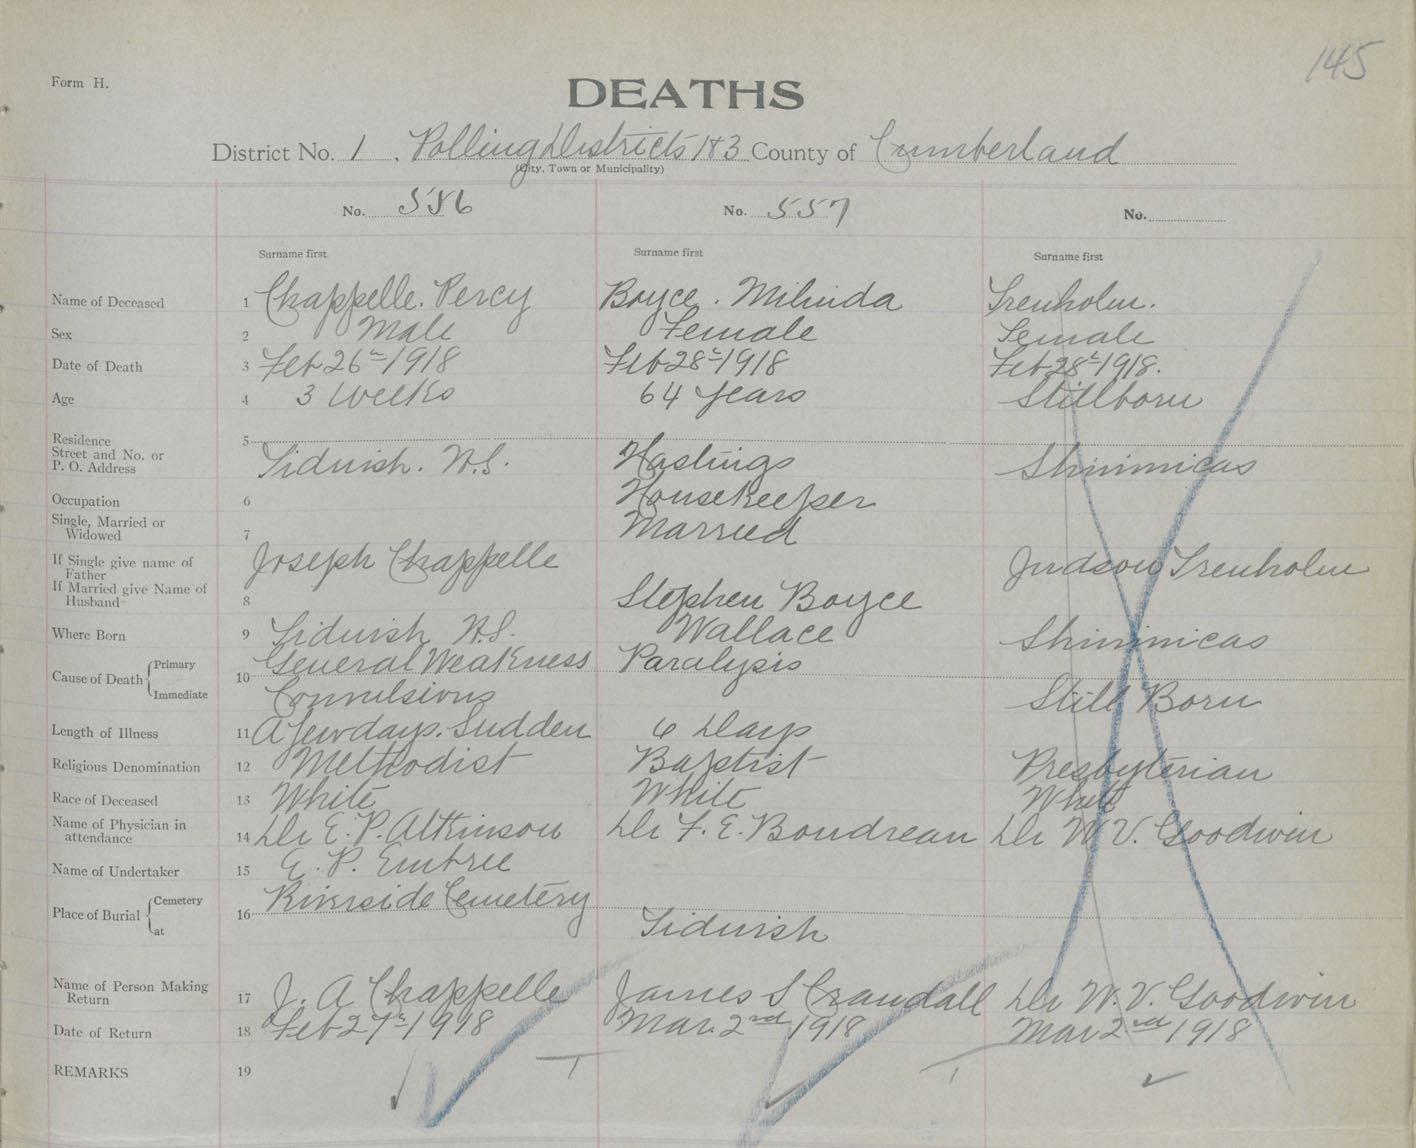 145
Form H.
DEATHS
District No. 1. Polling Districts 1&3 County of Cumberland
(City, Town or Municipality)
No. 556 No. 557 No.
Surname first Surname first Surname first
Name of Deceased 1 Chappelle. Percy Boyce. Milinda Trenholm.
Sex 2 Male Female Female
Date of Death 3 Feb 26th 1918 Feb 28th 1918 Feb 28th 1918.
Age 4 3 Weeks 64 years Stillborn
Residence 5
Street and No. or
P. O. Address Tidnish. N.S. Hastings Shinimicas
Occupation 6 Housekeeper
Single, Married or
Widowed 7 Married
If Single give name of
Father Joseph Chappelle Judson Trenholm
If Married give Name of
Husband 8 Stephen Boyce
Where Born 9 Tidnish N.S. Wallace Shinimicas
Cause of Death 10 Primary General Weakness Paralysis
Immediate Convulsions Still Born
Length of Illness 11 A few days. Sudden 6 Days
Religious Denomination 12 Methodist Baptist Presbyterian
Race of Deceased 13 White White White
Name of Physician in
attendance 14 Dr E. P. Atkinson Dr F. E. Boudreau Dr W. V. Goodwin
Name of Undertaker 15 E. P. Embree
Place of Burial 16 Cemetery Riverside Cemetery
at Tidnish
Name of Person Making
Return 17 J. A Chappelle James S Crandall Dr W. V. Goodwin
Date of Return 18 Feb 27th 1918 Mar. 2nd 1918 Mar 2nd 1918
REMARKS 19